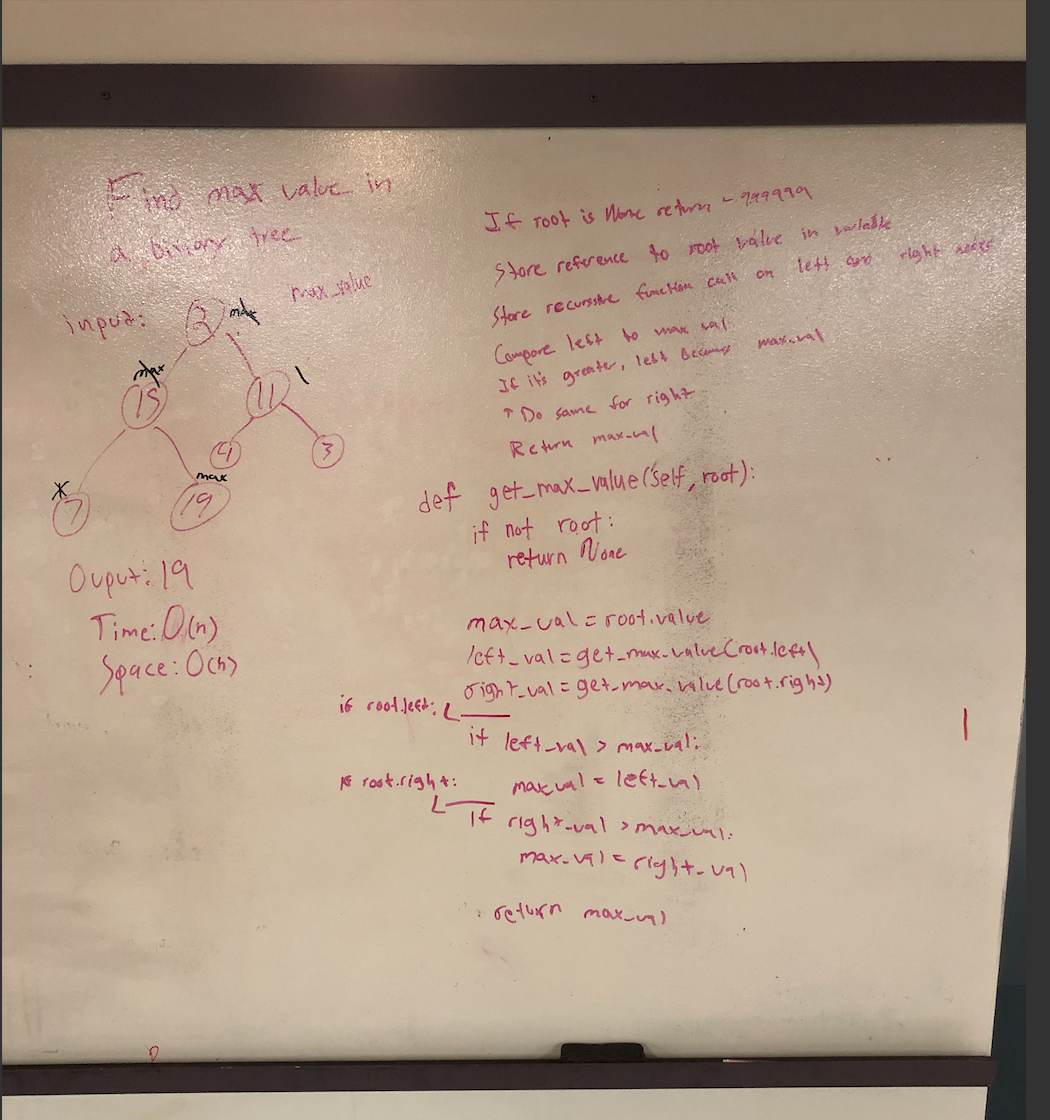 Find max value in
a binary tree
input:
max_value
2
max
max
15
11
4
3
max
7
19
Ouput: 19
Time: O(n)
Space: O(h)
If root is None return -999999
Store reference to root value in variable
Store recursive function call on left and right nodes
Compare left to max val
If it's greater, left becomes max_val
↑ Do same for right
Return max_val
def get_max_value(self, root):
if not root:
return None
max_val = root.value
left_val = get_max_value(root.left)
right_val = get_max_value(root.right)
if root.left:
if left_val > max_val:
max val = left_val
if root.right:
if right_val > max_val:
max_val = right_val
return max_val